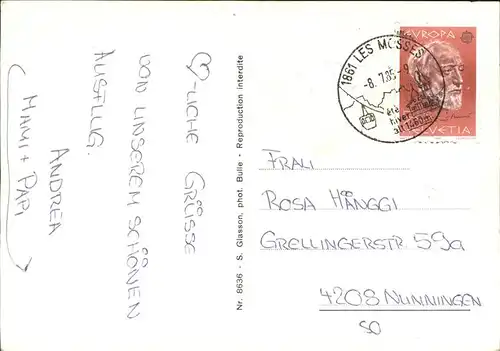 ♡-LICHE GRÜSSE
VON UNSEREM SCHÖNEN
AUSFLUG.
ANDREA
MAMI + PAPI
Nr. 8636 - S. Glasson, phot. Bulle - Reproduction interdite
1861 LES MOSSES
-8.7.85-9
été
hiver
EUROPA
HELVETIA
FRAU
ROSA HÄNGGI
GRELLINGERSTR 59a
4208 NUNNINGEN
SO